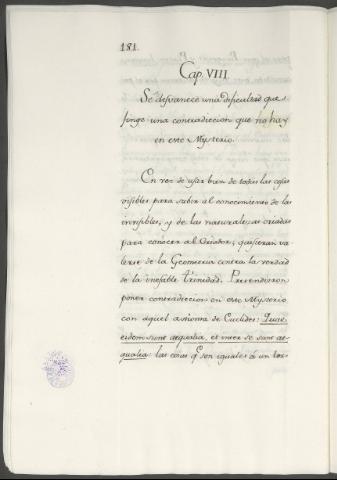 181.
Cap. VIII
Se desvanece una dificultad que
finge una contradiccion que no hay
en este Mysterio.
En vez de usar bien de todas las cosas
visibles para subir al conocimiento de las
invisibles, y de las naturales, as criadas
para conocer al Criador; quisieran va
lerse de la Geometria contra la verdad
de la inefable Trinidad. Pretendieron
poner contradiccion en este Mysterio
con aquel axioma de Euclides: Quae
eidem sunt aequalia, et inter se sunt ae-
qualia: las cosas q.e son iguales á un ter-